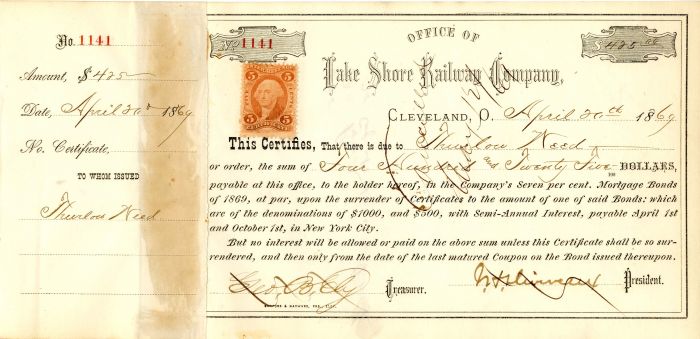 No. 1141
Amount, $425
Date, April 20th 1869
No. Certificate,
TO WHOM ISSUED
Thurlow Weed
No 1141
OFFICE OF
$425 00
Lake Shore Railway Company,
CLEVELAND, O. April 20th 1869
5 5
5 5
This Certifies, That there is due to Thurlow Weed
or order, the sum of Four Hundred and Twenty Five DOLLARS,
payable at this office, to the holder hereof, in the Company's Seven per cent. Mortgage Bonds
of 1869, at par, upon the surrender of Certificates to the amount of one of said Bonds: which
are of the denominations of $1000, and $500, with Semi-Annual Interest, payable April 1st
and October 1st, in New York City.
But no interest will be allowed or paid on the above sum unless this Certificate shall be so sur-
rendered, and then only from the date of the last matured Coupon on the Bond issued thereupon.
Geo B Ely Treasurer. President.